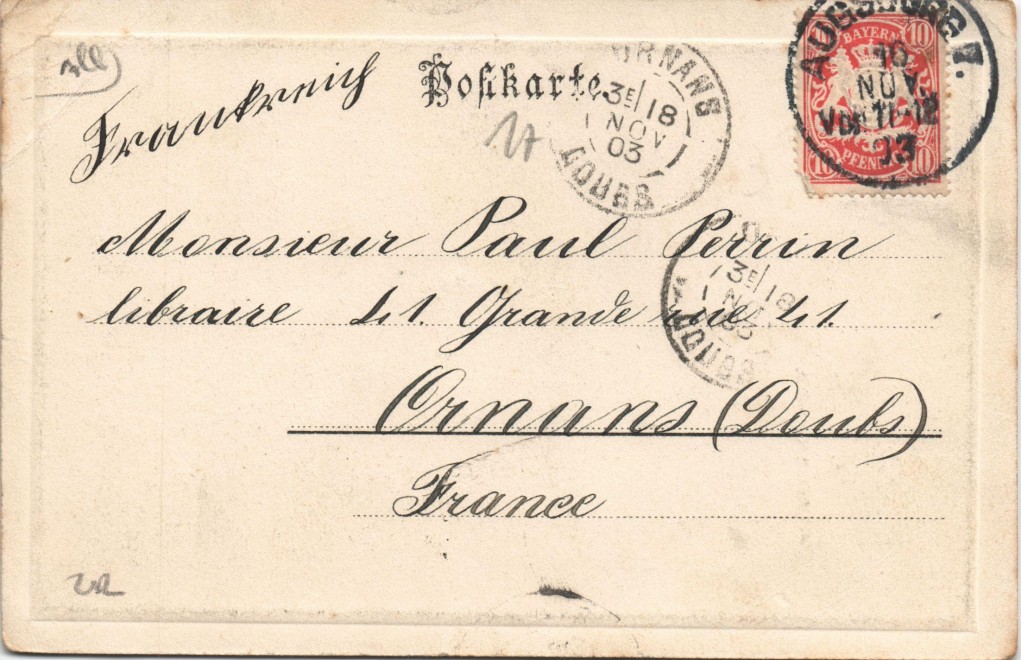 Frankreich
Postkarte
ORNANS
3E/18
NOV
03
DOUBS
AUGSBURG 7.
NOV.
VOR 11-12
03
BAYERN
10
PFENNIG
10 10
Monsieur Paul Perrin
libraire 41. Grande rue 41.
3E/18
03
DOUBS
Ornans (Doubs)
France